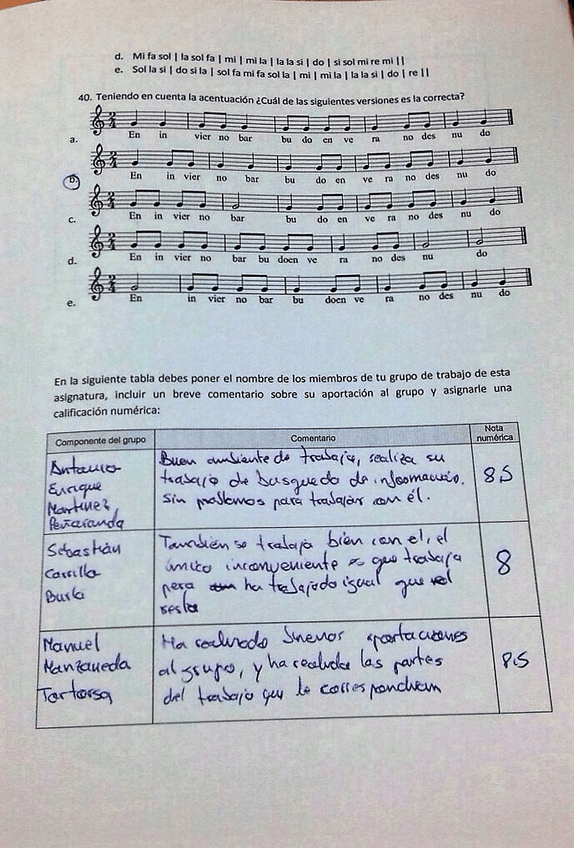 d. Mi fa sol | la sol fa | mi | mi la | la la si | do | si sol mi re mi ||
e. Sol la si | do si la | sol fa mi fa sol la | mi | mi la | la la si | do | re ||
40. Teniendo en cuenta la acentuación ¿Cuál de las siguientes versiones es la correcta?
a. En in vier no bar bu do en ve ra no des nu do
b. En in vier no bar bu do en ve ra no des nu do
c. En in vier no bar bu do en ve ra no des nu do
d. En in vier no bar bu doen ve ra no des nu do
e. En in vier no bar bu doen ve ra no des nu do
En la siguiente tabla debes poner el nombre de los miembros de tu grupo de trabajo de esta
asignatura, incluir un breve comentario sobre su aportación al grupo y asignarle una
calificación numérica:
Componente del grupo Comentario Nota numérica
Antonio
Enrique
Martínez
Peñaranda
Buen ambiente de trabajo, realiza su
trabajo de busquedo de información.
Sin problemas para trabajar con él.
8,5
Sebastián
Carrillo
También se trabaja bien con el, el
único inconveniente es que trabaja
pero ha trabajado igual que el
resto
8
Manuel
Manzaneda
Tortorsa
Ha realizado buenas aportaciones
al grupo, y ha realizado las partes
del trabajo que le correspondían
8,5